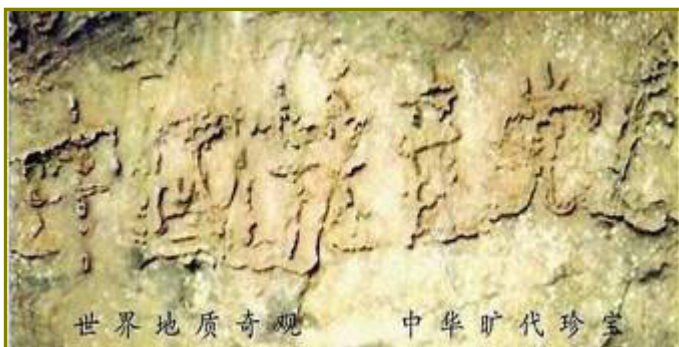 中国共产党
世界地质奇观 中华旷代珍宝